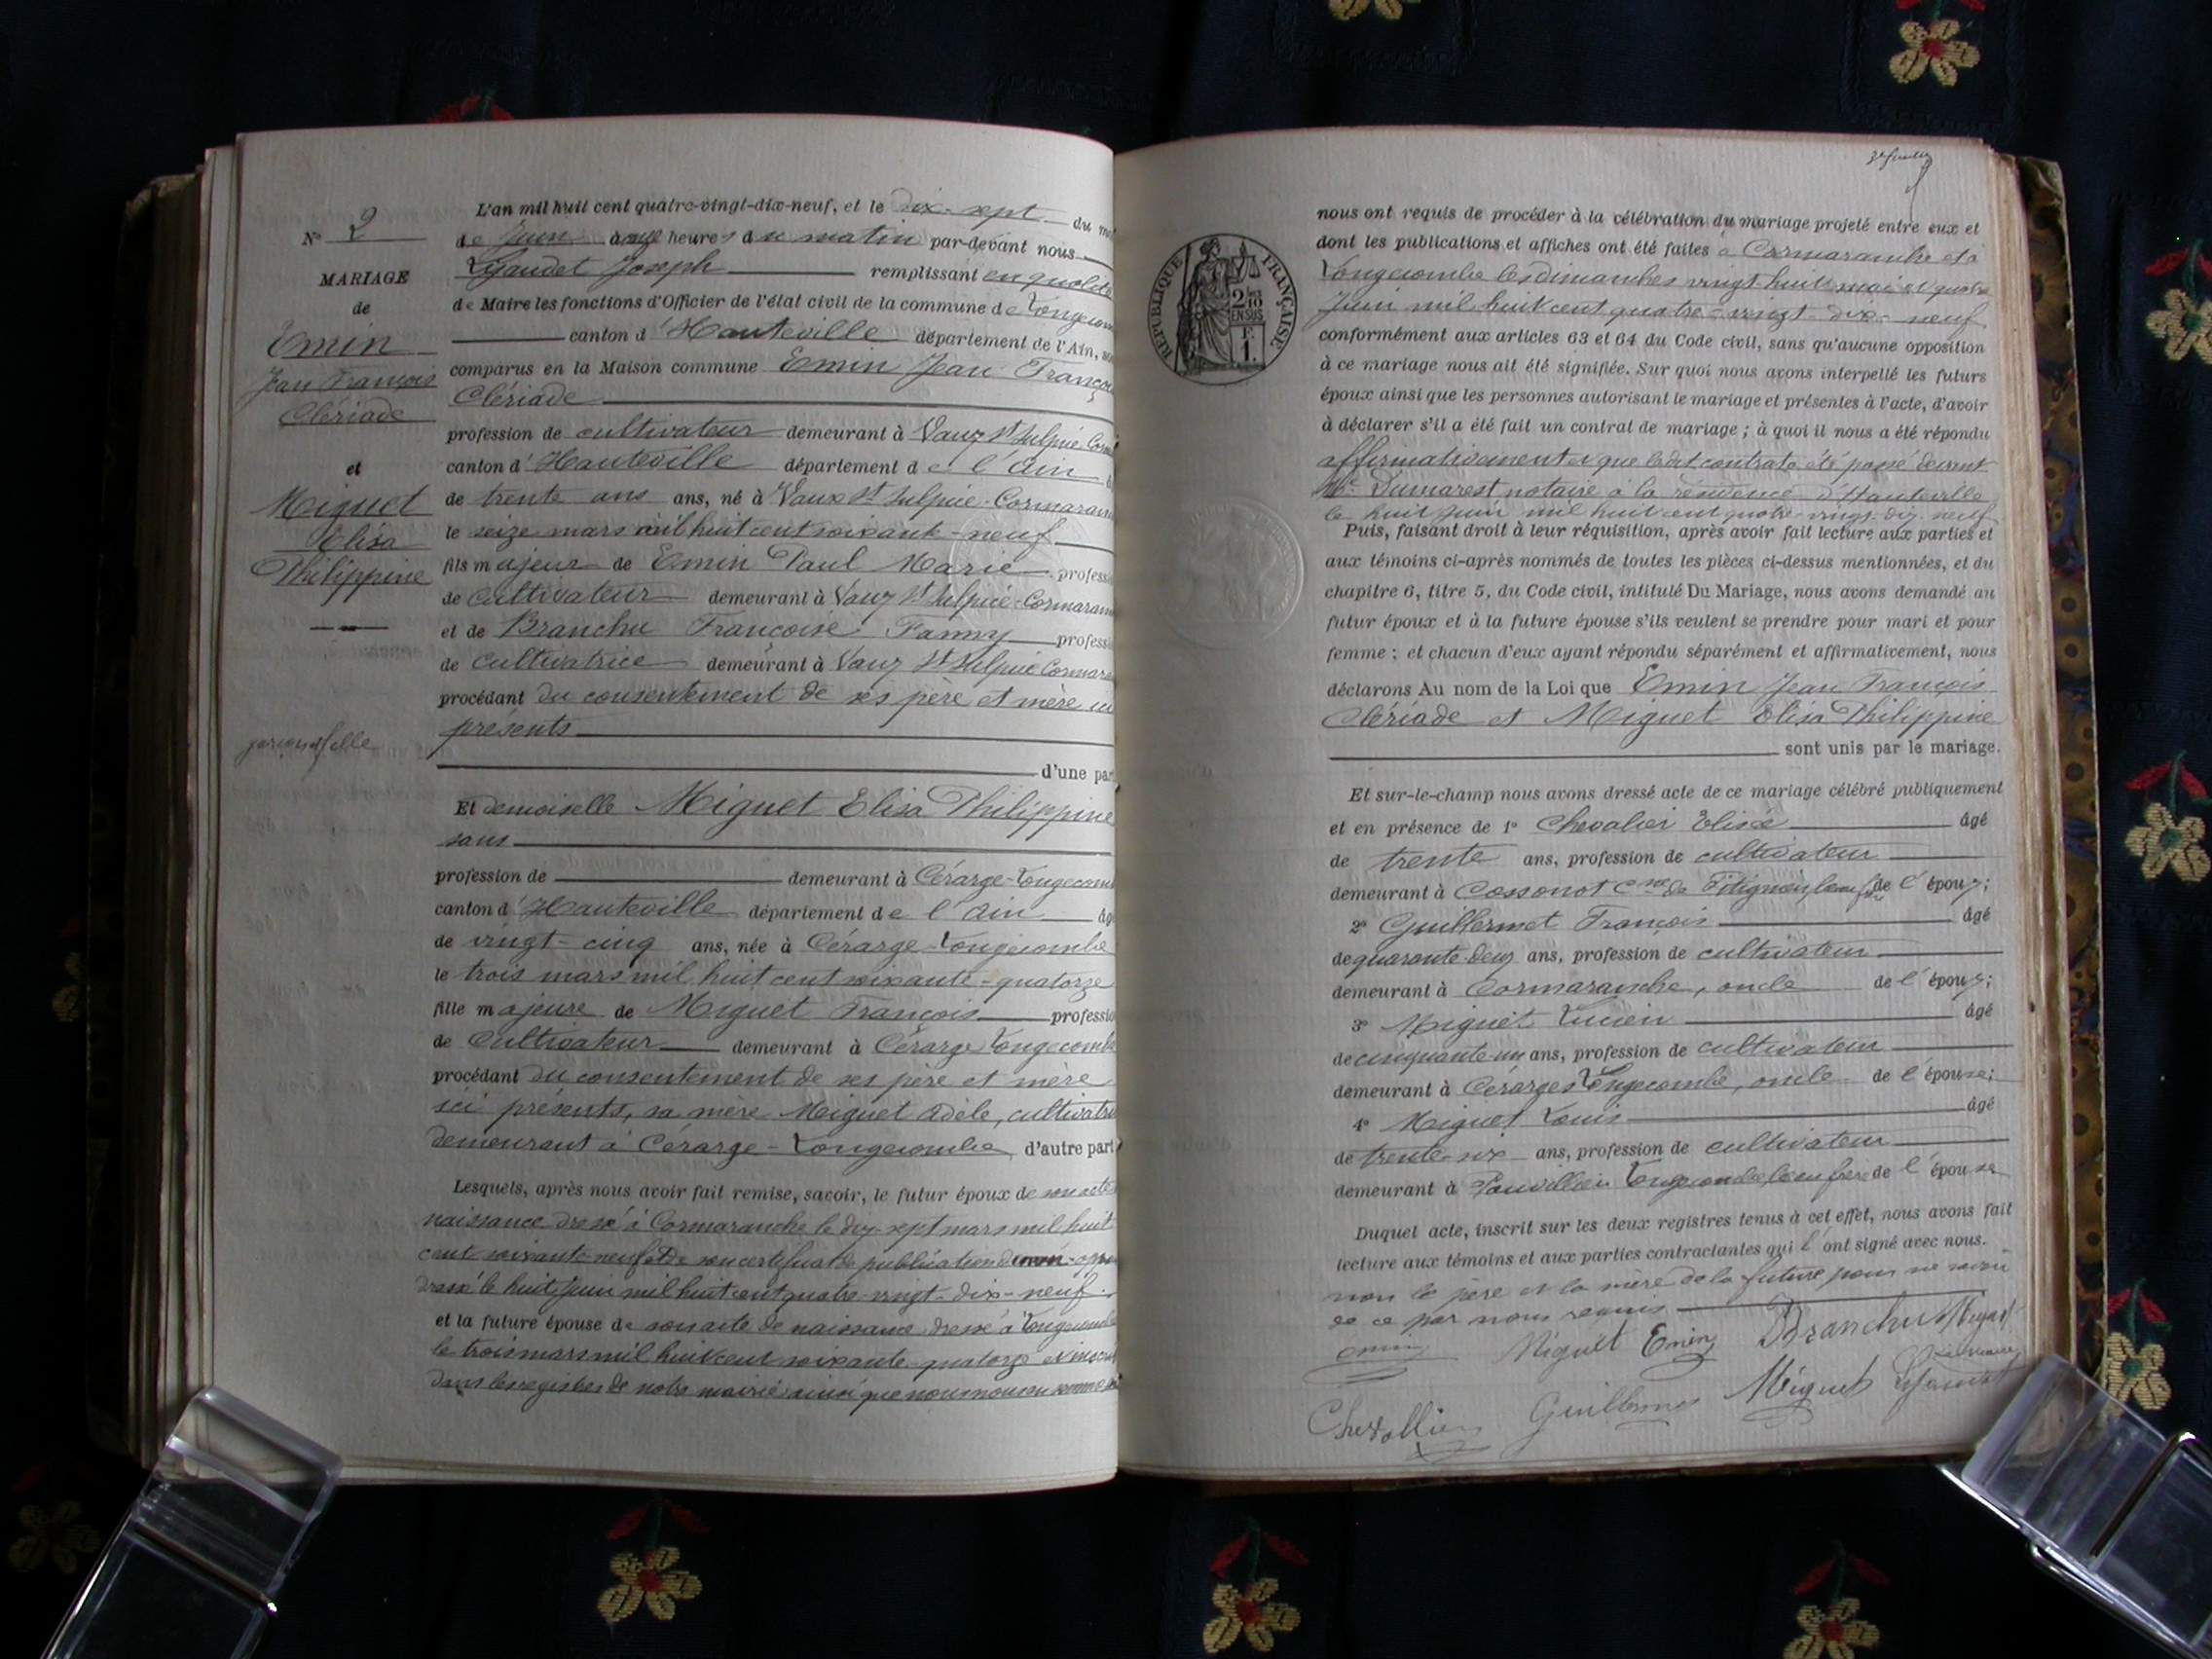 N° 2
MARIAGE
de
Emin
Jean François
Clériade
et
Miguet
Elisa
Philippine
L'an mil huit cent quatre-vingt-dix-neuf, et le dix-sept du
de Juin à heures du matin par-devant nous
Lyaudet Joseph remplissant en qualité
de Maire les fonctions d'Officier de l'état civil de la commune de
canton d'Hauteville département de l'Ain,
comparus en la Maison commune Emin Jean
Clériade
profession de cultivateur demeurant à Vaux St Sulpice
canton d'Hauteville département de l'Ain
de trente ans ans, né à Vaux St Sulpice-
le seize mars mil huit cent soixante-neuf
fils majeur de Emin Paul Marie
de cultivateur demeurant à Vaux St Sulpice-
et de Branche Françoise Fanny
de cultivatrice demeurant à Vaux St Sulpice
procédant du consentement de ses père et mère
présents
d'une
Et demoiselle Miguet Elisa Philippine
sans
profession de demeurant à Cérarge-
canton d'Hauteville département de l'Ain
de vingt-cinq ans, née à Cérarge-Longecombe
le trois mars mil huit cent soixante-quatorze
fille majeure de Miguet François
de Cultivateur demeurant à Cérarge
procédant du consentement de ses père et mère
ici présents, sa mère Miguet Adèle,
demeurant à Cérarge-Longecombe, d'autre part
Lesquels, après nous avoir fait remise, savoir, le futur époux de son
naissance dressé à Cormaranche le dix-sept mars mil huit
cent soixante-neuf et de son certificat de publication
dressé le huit Juin mil huit cent quatre-vingt-dix-neuf.
et la future épouse de son acte de naissance dressé à
le trois mars mil huit cent soixante-quatorze
dans les registres de notre mairie ainsi que nous nous en sommes
nous ont requis de procéder à la célébration du mariage projeté entre eux et
dont les publications et affiches ont été faites à Cormaranche et à
Longecombe les dimanches vingt-huit mai et quatre
Juin mil huit cent quatre-vingt-dix-neuf
RÉPUBLIQUE FRANÇAISE
conformément aux articles 63 et 64 du Code civil, sans qu'aucune opposition
à ce mariage nous ait été signifiée. Sur quoi nous avons interpellé les futurs
époux ainsi que les personnes autorisant le mariage et présentes à l'acte, d'avoir
à déclarer s'il a été fait un contrat de mariage ; à quoi il nous a été répondu
affirmativement et que ledit contrat a été passé devant
Me Dumarest notaire à la résidence d'Hauteville
le huit Juin mil huit cent quatre-vingt-dix-neuf
Puis, faisant droit à leur réquisition, après avoir fait lecture aux parties et
aux témoins ci-après nommés de toutes les pièces ci-dessus mentionnées, et du
chapitre 6, titre 5, du Code civil, intitulé Du Mariage, nous avons demandé au
futur époux et à la future épouse s'ils veulent se prendre pour mari et pour
femme ; et chacun d'eux ayant répondu séparément et affirmativement, nous
déclarons Au nom de la Loi que Emin Jean François
Clériade et Miguet Elisa Philippine
sont unis par le mariage.
Et sur-le-champ nous avons dressé acte de ce mariage célébré publiquement
et en présence de 1° Chevalier Elisé âgé
de trente ans, profession de cultivateur
demeurant à Cossonot Cne de de l'époux;
2° Guillermet François âgé
de quarante-deux ans, profession de cultivateur
demeurant à Cormaranche, oncle de l'époux;
3° Miguet Lucien âgé
de cinquante-un ans, profession de cultivateur
demeurant à Cérarges Longecombe, oncle de l'épouse;
4° Miguet Louis âgé
de trente-six ans, profession de cultivateur
demeurant à Longecombe beau frère de l'épouse
Duquel acte, inscrit sur les deux registres tenus à cet effet, nous avons fait
lecture aux témoins et aux parties contractantes qui l'ont signé avec nous.
non le père et la mère de la future pour ne savoir
de ce par nous requis
Emin Miguet Emin Branche
Chevallier Guillermet Miguet Lyaudet